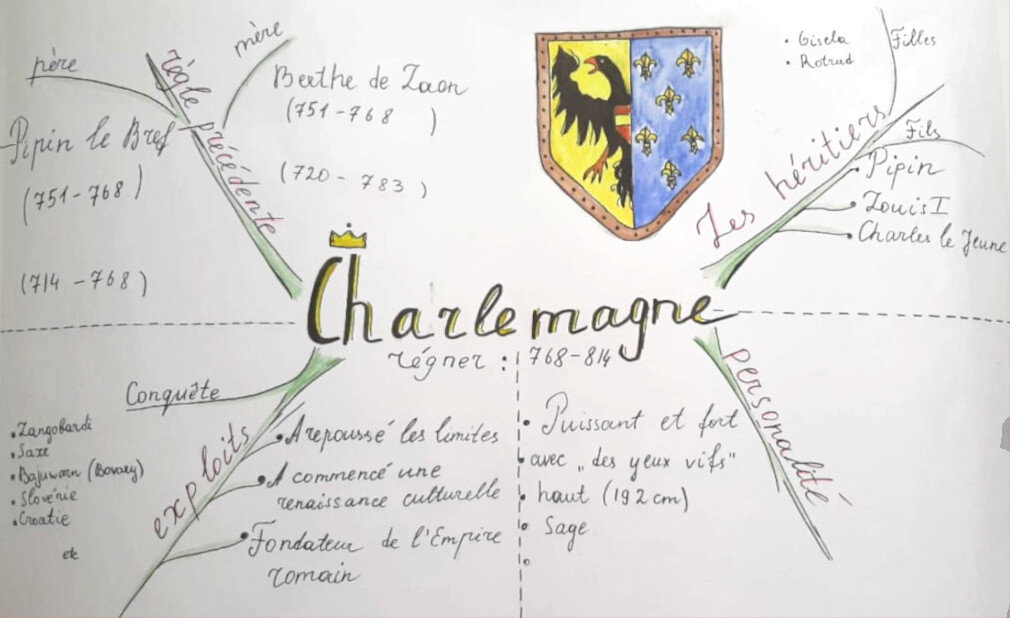 père
Pipin le Bref
(751-768)
(714-768)
règle précédente
mère
Berthe de Laon
(751-768 )
(720-783)
Charlemagne
régner : 768-814
Les héritiers
Filles
• Gisela
• Rotrud
Fils
Pipin
Louis I
Charles le Jeune
exploits
Conquête
• Langobardi
• Saxe
• Bajuwarn (Bovary)
• Slovénie
• Croatie
etc
A repoussé les limites
A commencé une
renaissance culturelle
Fondateur de l'Empire
romain
personalité
• Puissant et fort
avec „des yeux vifs"
• haut (192 cm)
• Sage